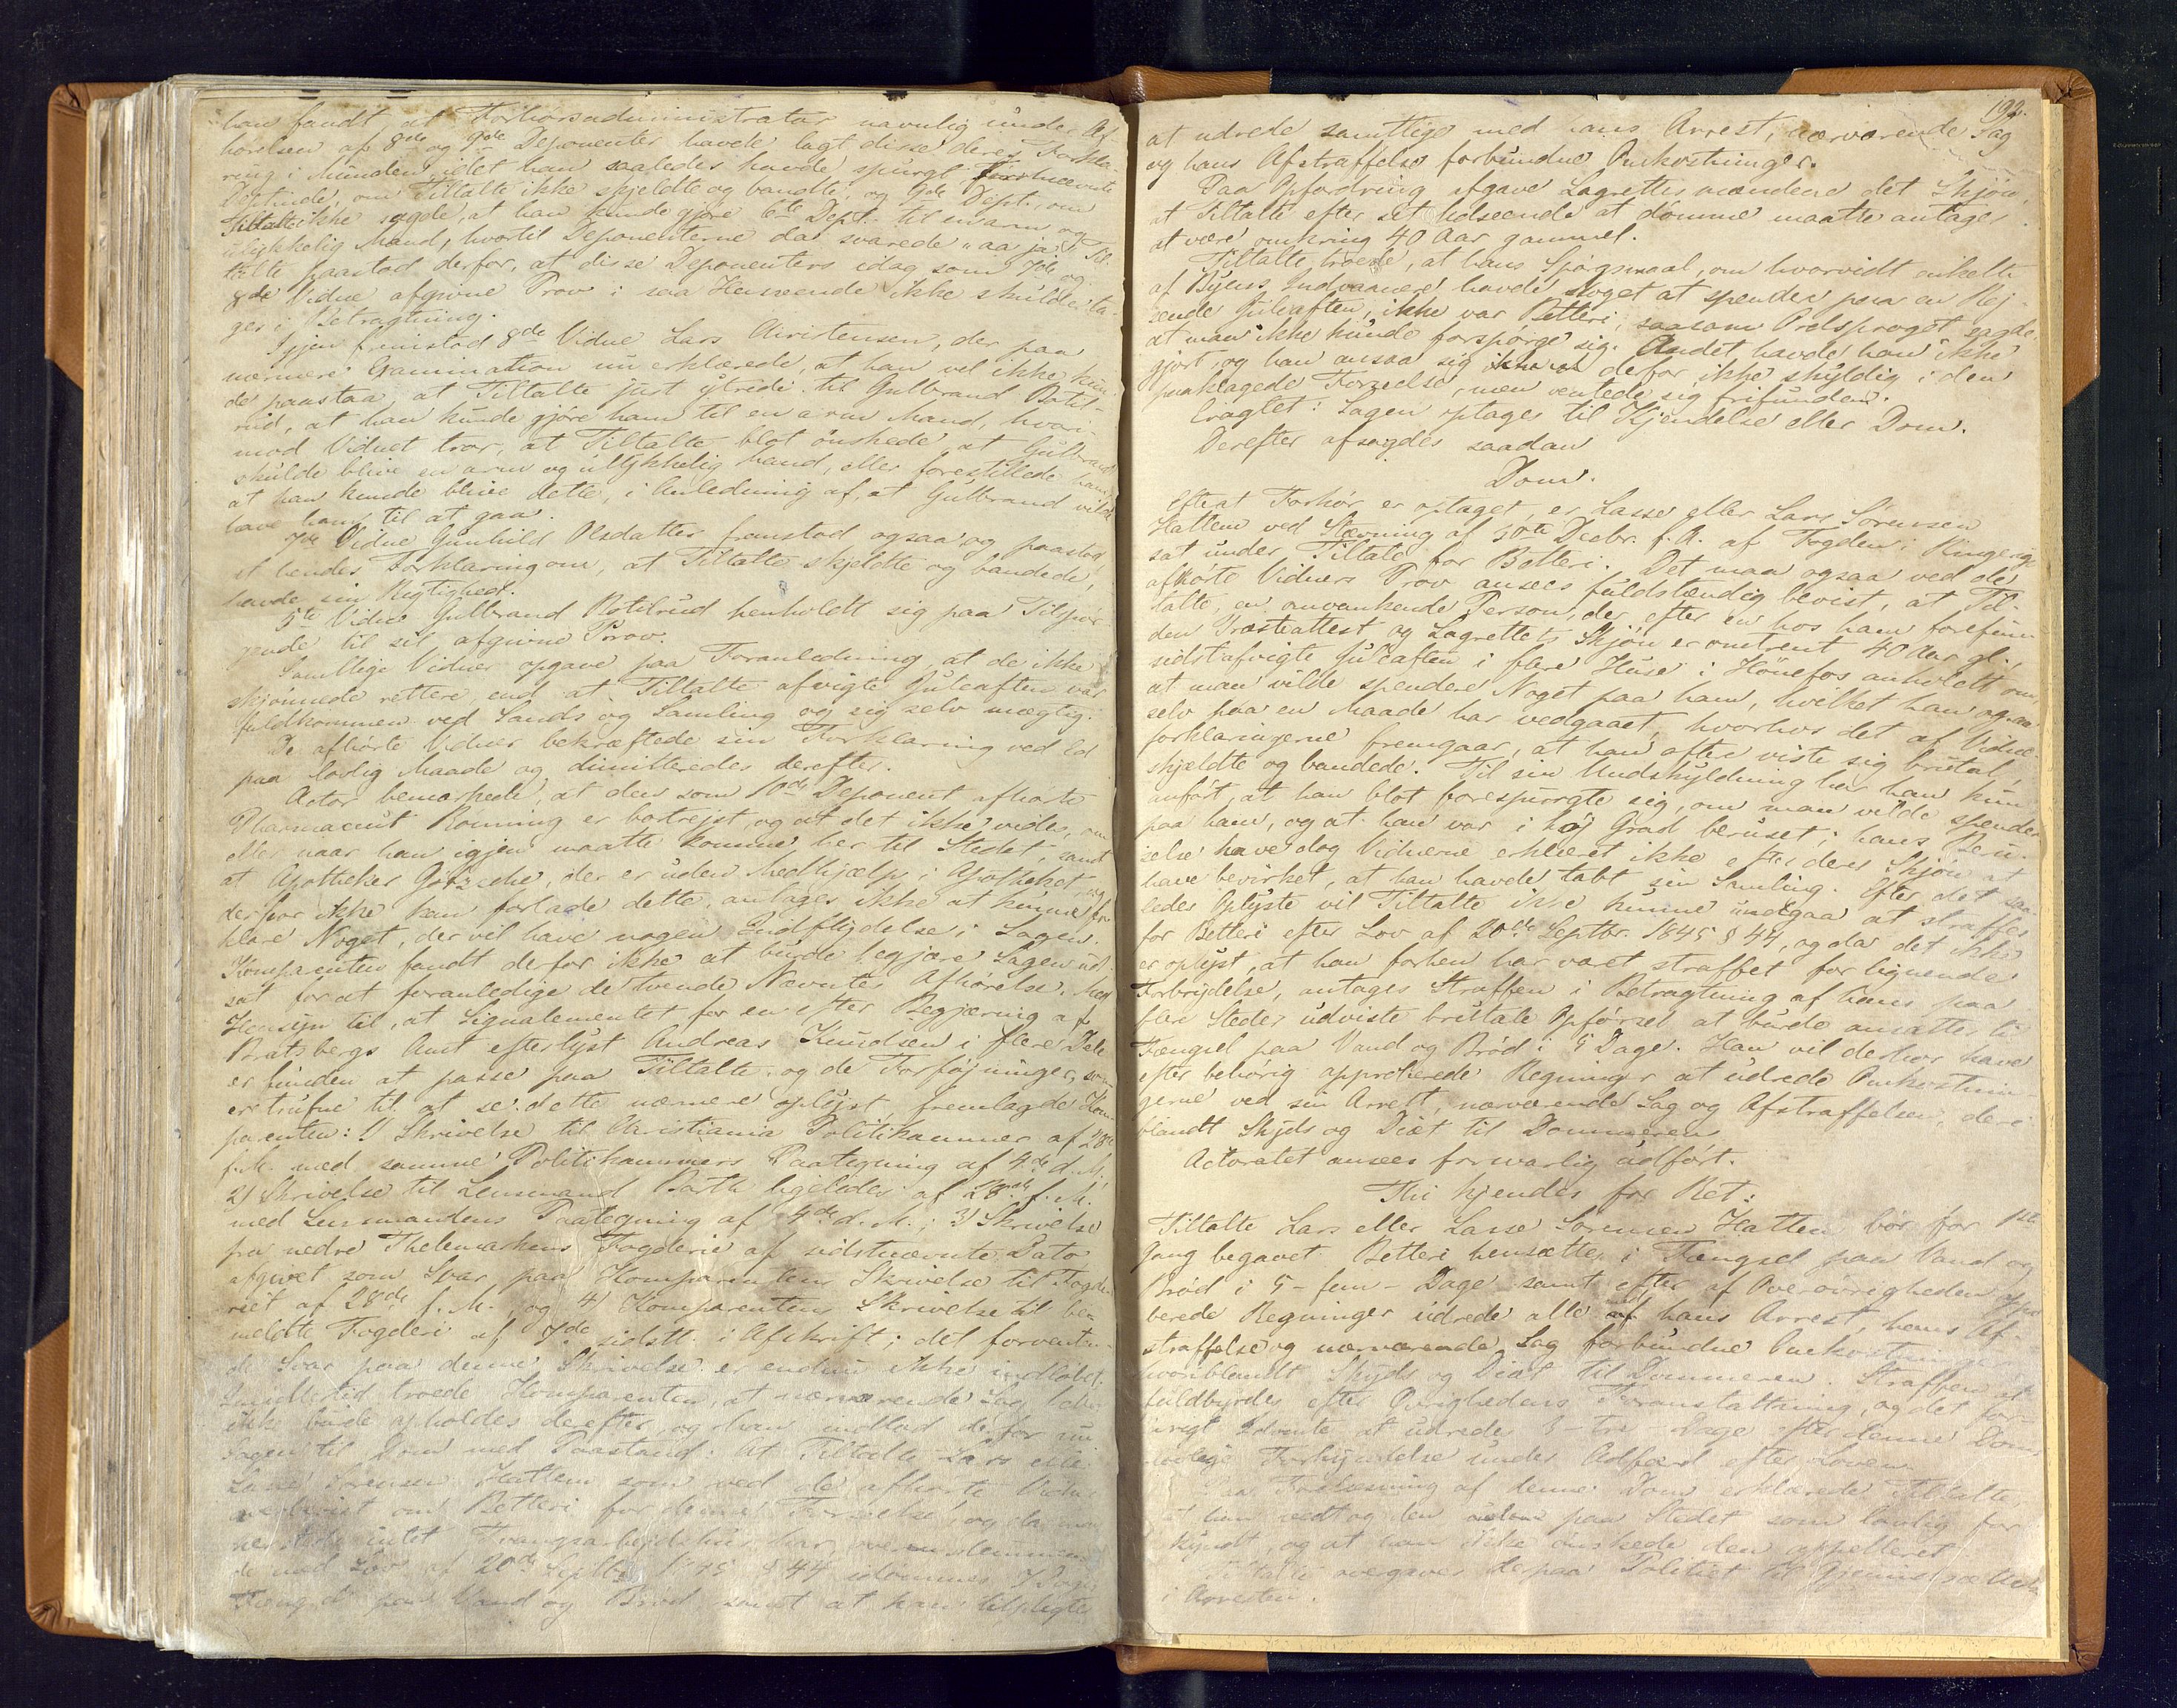 han fandt, at Forhørsadministrator navnlig under Af-
hørelsen af 8de og 9de Deponenter havde lagt disse deres Forkla-
ring i Munden, idet han saaledes havde spurgt Førstnævnte
om Tiltalte ikke skjeldte og bandte, og 9de Dept., om
Tiltalte ikke sagde, at han kunde gjøre 6te Dept. til en arm og
ulykkelig Mand, hvortil Deponenterne da svarede "aa ja". Til-
talte paastod derfor, at disse Deponenters idag som 7de og
8de Vidne afgivne Prov i saa Henseende ikke skulde ta-
ges i Betragtning.
Igjen fremstod 8de Vidne Lars Christensen, der paa
nærmere Examination nu erklærede, at han vel ikke kun-
de paastaa, at Tiltalte just ytrede til Gulbrand Botil-
rud, at han kunde gjøre ham til en arm Mand, hvori-
mod Vidnet tror, at Tiltalte blot ønskede, at Gulbrand
skulde blive en arm og ulykkelig Mand, eller forestillede ham,
at han kunde blive dette, i Anledning af, at Gulbrand vilde
have ham til at gaa.
7de Vidne Gunhild Olsdatter fremstod ogsaa og paastod
at hendes Forklaring om, at Tiltalte skjeldte og bandede,
havde sin Rigtighed.
5te Vidne Gulbrand Botilrud henholdt sig paa Tilspør-
gende til sit afgivne Prov.
Samtlige Vidner opgave paa Foranledning, at de ikke
skjønnede rettere end at Tiltalte afvigte Juleaften var
fuldkommen ved Sands og Samling og sig selv mægtig.
De afhørte Vidner bekræftede sin Forklaring ved Ed
paa lovlig Maade og dimitteredes derefter.
Actor bemærkede, at den som 10de Deponent afhørte
Pharmaceut Ronning er bortrejst, og at det ikke vides, om
eller naar han igjen maatte komme her til Stedet, samt
at Apotheker Gotzsche, der er uden Medhjælp i Apotheket, og
derfor ikke kan forlade dette, antages ikke at kunne for-
klare Noget, der vil have nogen Indflydelse i Sagen.
Komparenten fandt derfor ikke at burde begjære Sagen ud-
sat for at foranledige de tvende Nævntes Afhørelse. Med
Hensyn til, at Signalementet for en efter Begjæring af
Bratsbergs Amt efterlyst Andreas Knudsen i flere Dele
er funden at passe paa Tiltalte, og de Forføjninger, som
er trufne til at se dette nærmere oplyst, fremlagde Kom-
parenten: 1) Skrivelse til Christiania Politikammer af 28de
f. M. med samme Politikammers Paategning af 4de d. M.;
2) Skrivelse til Lensmand Barth ligeledes af 28de f. M.
med Lensmandens Paategning af 4de d. M.; 3) Skrivelse
fra nedre Thelemarkens Fogderie af sidstnævnte Dato
afgivet som Svar paa Komparentens Skrivelse til Fogde-
riet af 28de f. M., og 4) Komparentens Skrivelse til be-
meldte Fogderi af 7de sidstl. i Afskrift; det forvente-
de Svar paa denne Skrivelse er endnu ikke indløbet.
Imidlertid troede Komparenten, at nærværende Sag
ikke burde opholdes derefter, og han indlod derfor nu
Sagen til Dom med Paastand: At Tiltalte Lars eller
Lasse Sørensen Hatlem som ved de afhørte Vidner
overbevist om Betleri for denne Forseelse, og da man
her intet Tvangsarbejdshus har, overensstemmen-
de med Lov af 20de Septbr 1845 § 44 idømmes
Fængsel paa Vand og Brød samt at han tilpligtes
192.
at udrede samtlige med hans Arrest, nærværende Sag
og hans Afstraffelse forbundne Omkostninger.
Paa Opfordring afgave Lagrettesmændene det Skjøn,
at Tiltalte efter sit Udseende at dømme maatte antages
at være omkring 40 Aar gammel.
Tiltalte troede, at hans Spørgsmaal, om hvorvidt enkelte
af Byens Indvaanere havde Noget at spendere paa en Rej-
sende Juleaften, ikke var Betleri, saasom Ordsproget sagde,
at man ikke kunde forspørge sig. Andet havde han ikke
gjort, og han ansaa sig derfor ikke skyldig i den
paaklagede Forseelse, men ventede sig frifunden.
Eragtet: Sagen optages til Kjendelse eller Dom.
Derefter afsagdes saadan
Dom.
Efterat Forhør er optaget, er Lasse eller Lars Sørensen
Hatlem ved Stævning af 30te Decbr. f. A. af Fogden i Ringerige
sat under Tiltale for Betleri. Det maa ogsaa ved de
afhørte Vidners Prov ansees fuldstændig bevist, at Til-
talte, en omvankende Person, der efter en hos ham forefun-
den Præsteattest og Lagrettets Skjøn er omtrent 40 Aar gl.,
sidstafvigte Juleaften i flere Huse i Hönefos anholdt om,
at man vilde spendere Noget paa ham, hvilket han ogsaa
selv paa en Maade har vedgaaet, hvorhos det af Vidne-
forklaringerne fremgaar, at han ofte viste sig brutal,
skjældte og bandede. Til sin Undskyldning har han kun
anført, at han blot forespurgte sig, om man vilde spendere
paa ham, og at han var i høj Grad beruset; hans Beru-
selse have dog Vidnerne erklæret ikke efter deres Skjøn at
have bevirket, at han havde tabt sin Samling. Efter det saa-
ledes Oplyste vil Tiltalte ikke kunne undgaa at straffes
for Betleri efter Lov af 20de Septbr. 1845 § 44, og da det ikke
er oplyst, at han forhen har været straffet for lignende
Forbrydelse, antages Straffen i Betragtning af hans paa
flere Steder udviste brutale Opførsel at burde ansættes til
Fængsel paa Vand og Brød i 5 Dage. Han vil derhos have
efter behørig approberede Regninger at udrede Omkostnin-
gerne ved sin Arrest, nærværende Sag og Afstraffelsen, deri-
blandt Skyds og Diæt til Dommeren.
Actoratet ansees forsvarlig udført.
Thi kjendes for Ret:
Tiltalte Lars eller Lasse Sørensen Hatlem bör for 1ste
Gang begaaet Betleri hensættes i Fængsel paa Vand og
Brød i 5 - fem - Dage samt efter af Overøvrigheden appro-
berede Regninger udrede alle af hans Arrest, hans Af-
straffelse og nærværende Sag forbundne Omkostninger,
hvoriblandt Skyds og Diæt til Dommeren. Straffen at
fuldbyrdes efter Øvrighedens Foranstaltning, og det for-
øvrigt Idømte at udredes 3 - tre - Dage efter denne Doms
lovlige Forkyndelse under Adfærd efter Loven.
Paa Forelæsning af denne Dom erklærede Tiltalte,
at han vedtog den paa Stedet som lovlig for-
kyndt, og at han ikke ønskede den appelleret.
Tiltalte overgaves derpaa Politiet til
i Arresten.